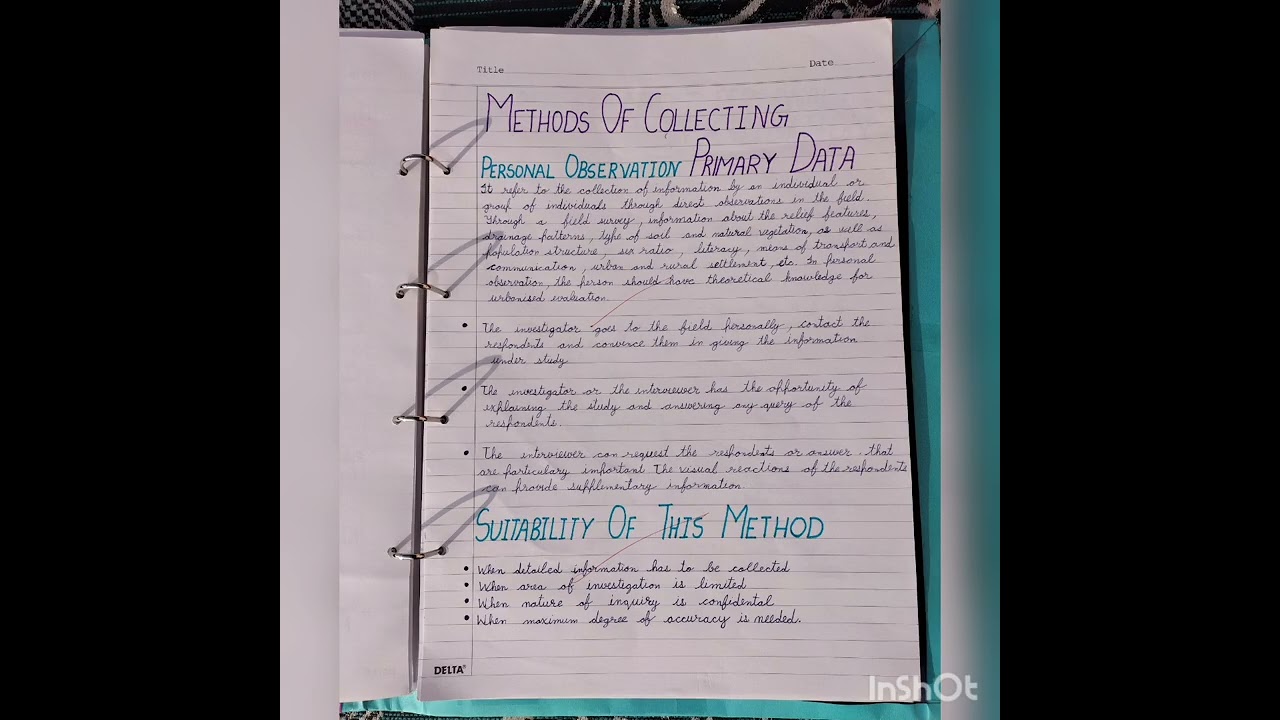 Title
Date
METHODS OF COLLECTING
PERSONAL OBSERVATION PRIMARY DATA
It refer to the collection of information by an individual or
group of individuals through direct observations in the field.
Through a field survey, information about the relief features,
drainage patterns, type of soil and natural vegetation, as well as
population structure, sex ratio, literacy, means of transport and
communication, urban and rural settlement, etc. In personal
observation, the person should have theoretical knowledge for
urbanised evaluation.
• The investigator goes to the field personally, contact the
respondents and convince them in giving the information
under study
• The investigator or the interviewer has the opportunity of
explaining the study and answering any query of the
respondents.
• The interviewer can request the respondents or answer that
are particulary important The visual reactions of the respondents
can provide supplementary information.
SUITABILITY OF THIS METHOD
• When detailed information has to be collected
• When area of investigation is limited
• When nature of inquiry is confidental
• When maximum degree of accuracy is needed.
DELTA®
InShOt